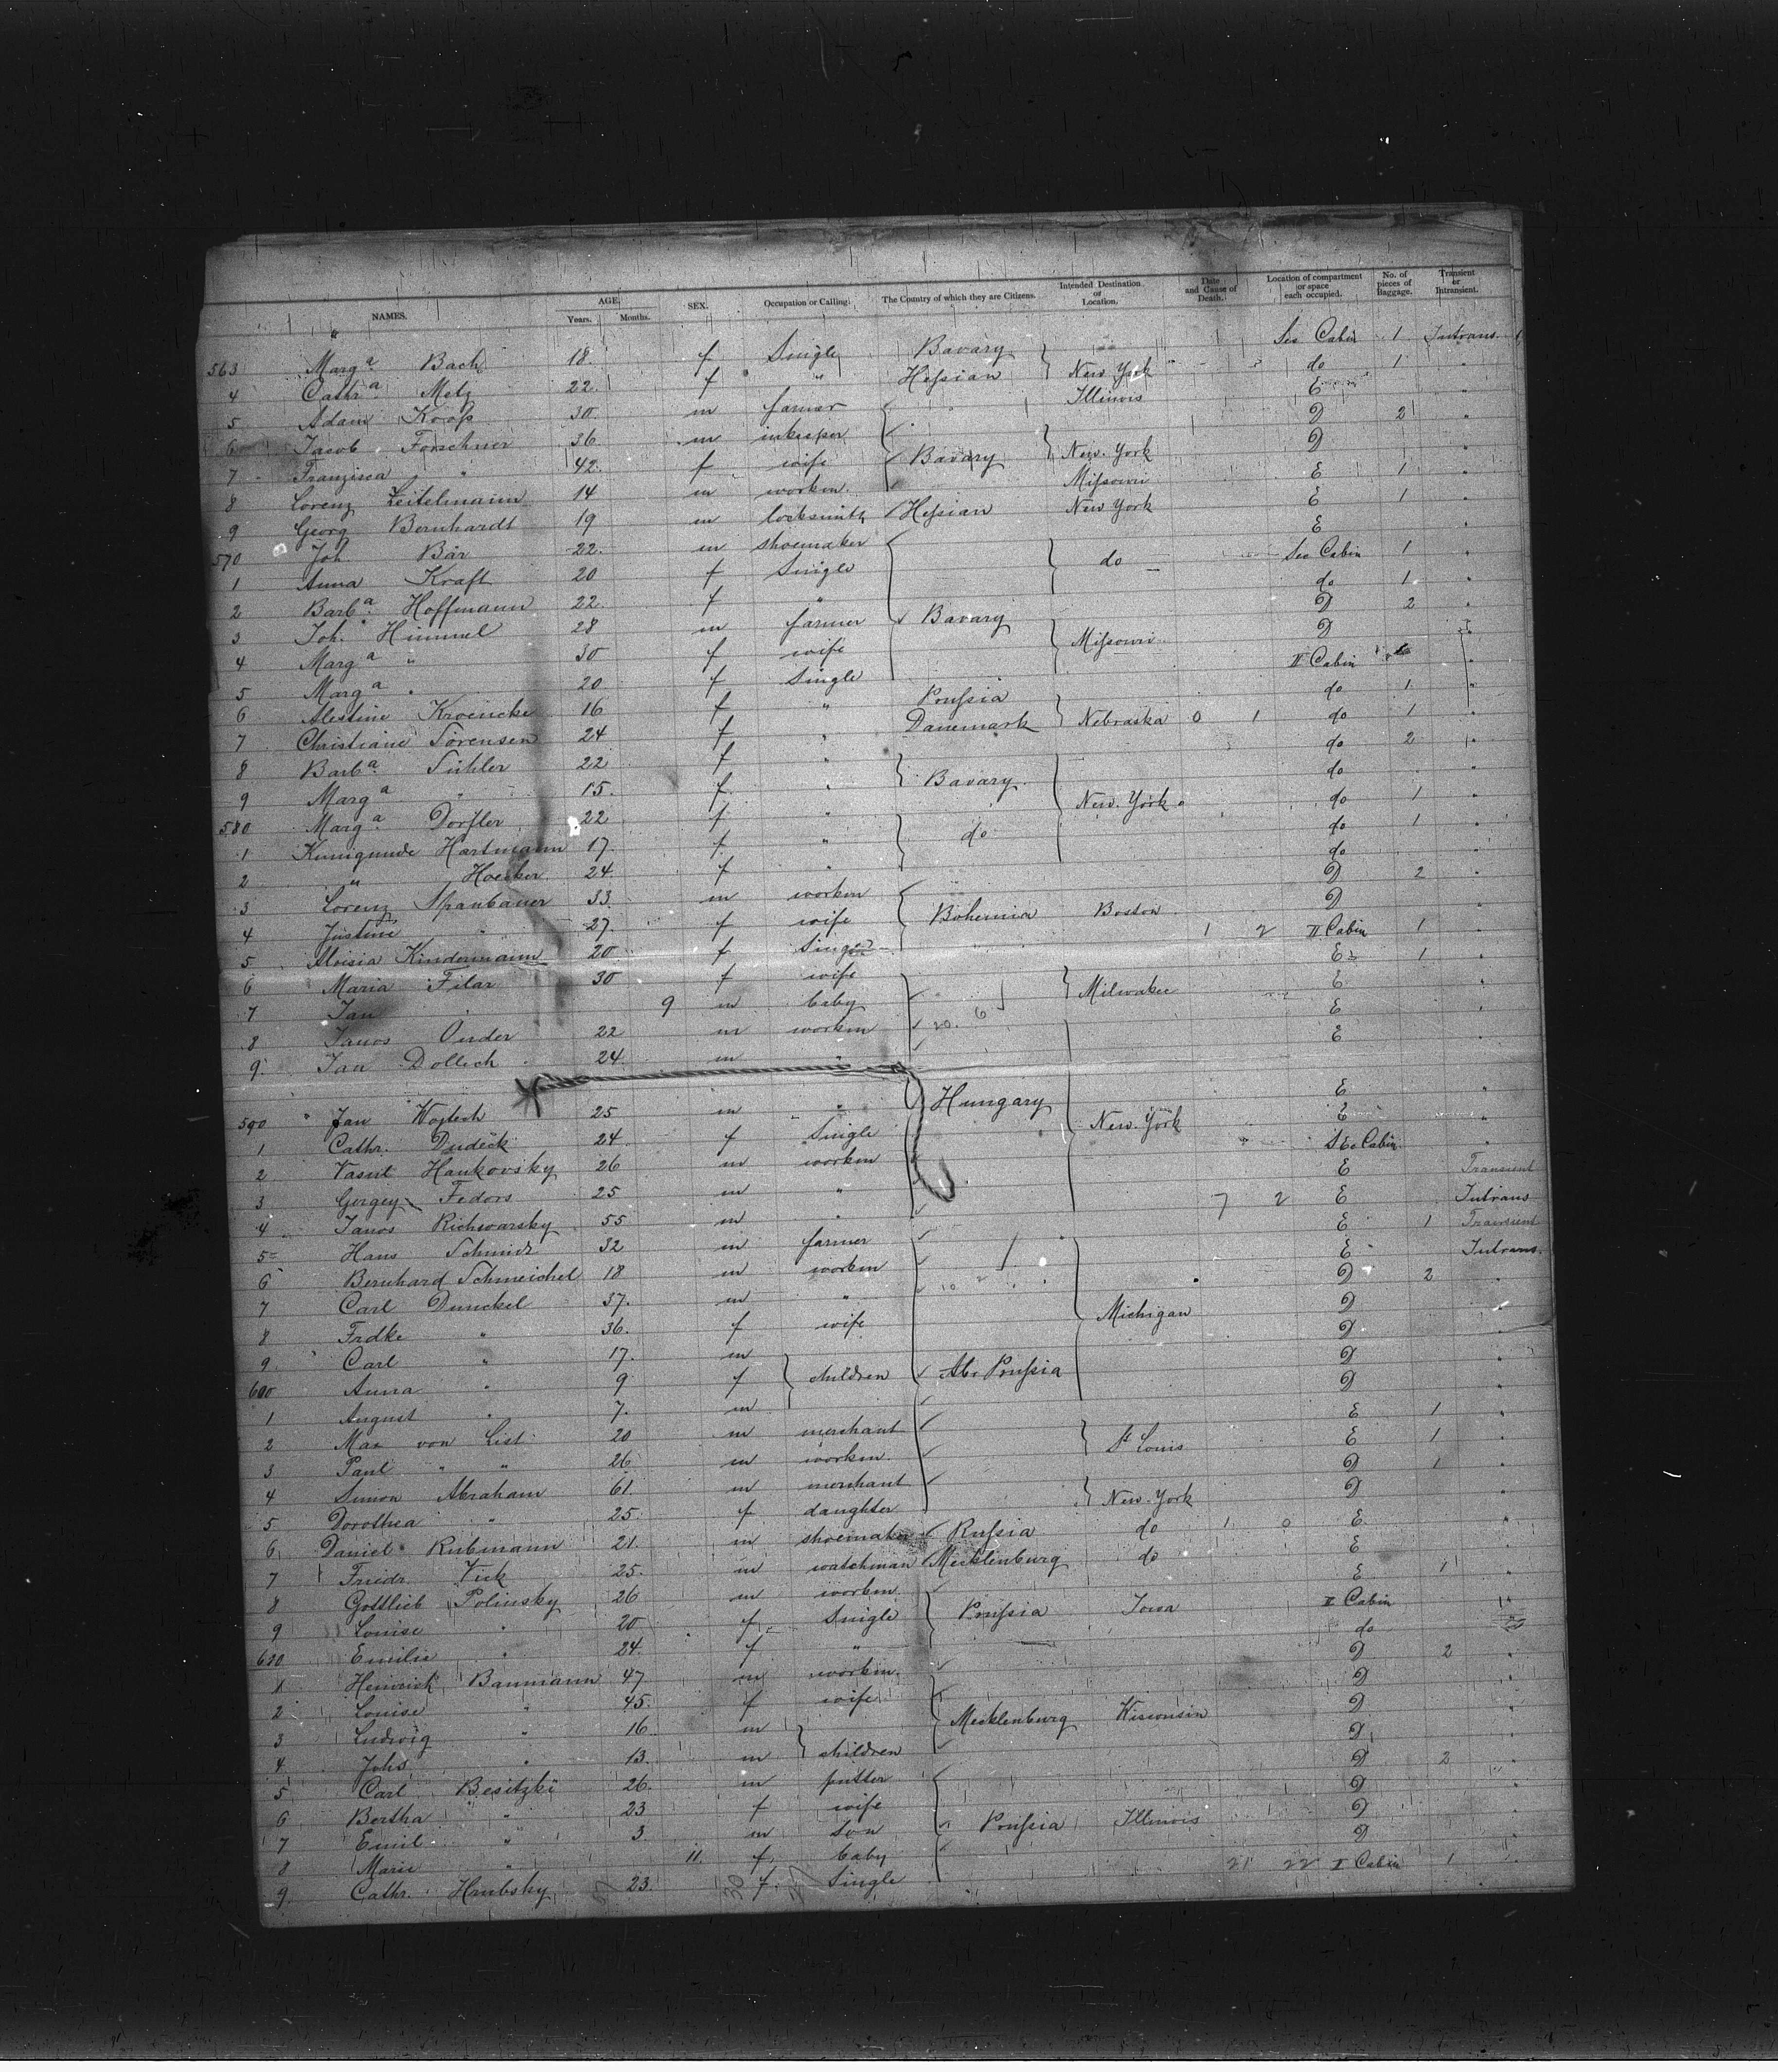 NAMES. AGE. Years. Months. SEX. Occupation or Calling. The Country of which they are Citizens. Intended Destination or Location. Date and Cause of Death. Location of compartment or space each occupied. No. of pieces of Baggage. Transient or Intransient.
563 Marg.a Bach 18 f Single Bavary Sec Cabin 1 Intrans
4 Cathr.a Metz 22 f " Hessian New York do 1
5 Adam Koop 30 m farmer Illinois E
6 Jacob Forschner 36 m inkeeper D 2
7 Franzisca " 42 f wife Bavary New York D
8 Lorenz Zeitelmann 14 m workm. Missouri E 1
9 Georg Bernhardt 19 m locksmith Hessian New York E 1
570 Joh Bär 22 m shoemaker E
1 Anna Kraft 20 f Single do Sec Cabin 1
2 Barb.a Hoffmann 22 f " do 1
3 Joh. Himmel 28 m farmer Bavary D 2
4 Marg.a " 30 f wife Missouri D
5 Marg.a " 20 f Single II Cabin
6 Alestine Kroencke 16 f " Prussia do 1
7 Christiane Sörensen 24 f " Danemark Nebraska 0 1 do 1
8 Barb.a Sühler 22 f " do 2
9 Marg.a " 15 f " Bavary do
580 Marg.a Dörfler 22 f " New York do 1
1 Kunigunde Hartmann 17 f " do do 1
2 " Hoecker 24 f " do
3 Lorenz Spanbauer 33 m workm D 2
4 Justine " 27 f wife Bohemia Boston D
5 Aloisia Kindermann 20 f Single 1 2 II Cabin 1
6 Maria Filar 30 f wife E 1
7 Jan " 9 m baby Milwakee E
8 Janos Onder 22 m workm E
9 Jan Dollech 24 m " E
590 Jan Wojtech 25 m " Hungary E
1 Cathr. Dudeck 24 f Single New York E
2 Vasut Hankovsky 26 m workm Sec Cabin
3 Gergey Fedors 25 m " E Transient
4 Janos Richwarsky 55 m " 7 2 E Intrans
5 Hans Schmidt 32 m farmer E 1 Transient
6 Bernhard Schmeichel 18 m workm E Intrans.
7 Carl Dunckel 37 m " D 2
8 Frdke " 36 f wife Michigan D
9 Carl " 17 m D
600 Anna " 9 f children Prussia D
1 August " 7 m D
2 Max von List 20 m merchant E 1
3 Paul " " 26 m workm. St Louis E 1
4 Simon Abraham 61 m merchant D 1
5 Dorothea " 25 f daughter New York D
6 Daniel Rubmann 21 m shoemaker Russia do 1 0 E
7 Friedr. Vick 25 m watchman Mecklenburg do E
8 Gottlieb Polinsky 26 m workm E 1
9 Louise " 20 f Single Prussia Iowa II Cabin
610 Emilie " 24 f " do
1 Heinrich Baumann 47 m workm. D 2
2 Louise " 45 f wife D
3 Ludwig " 16 m Mecklenburg Wisconsin D
4 Johs " 13 m children D
5 Carl Besitzki 26 m D 2
6 Bertha " 23 f wife D
7 Emil " 3 m son Prussia Illinois D
8 Marie " 11 f baby D
9 Cathr. Hrubsky 23 f Single 21 22 II Cabin 1